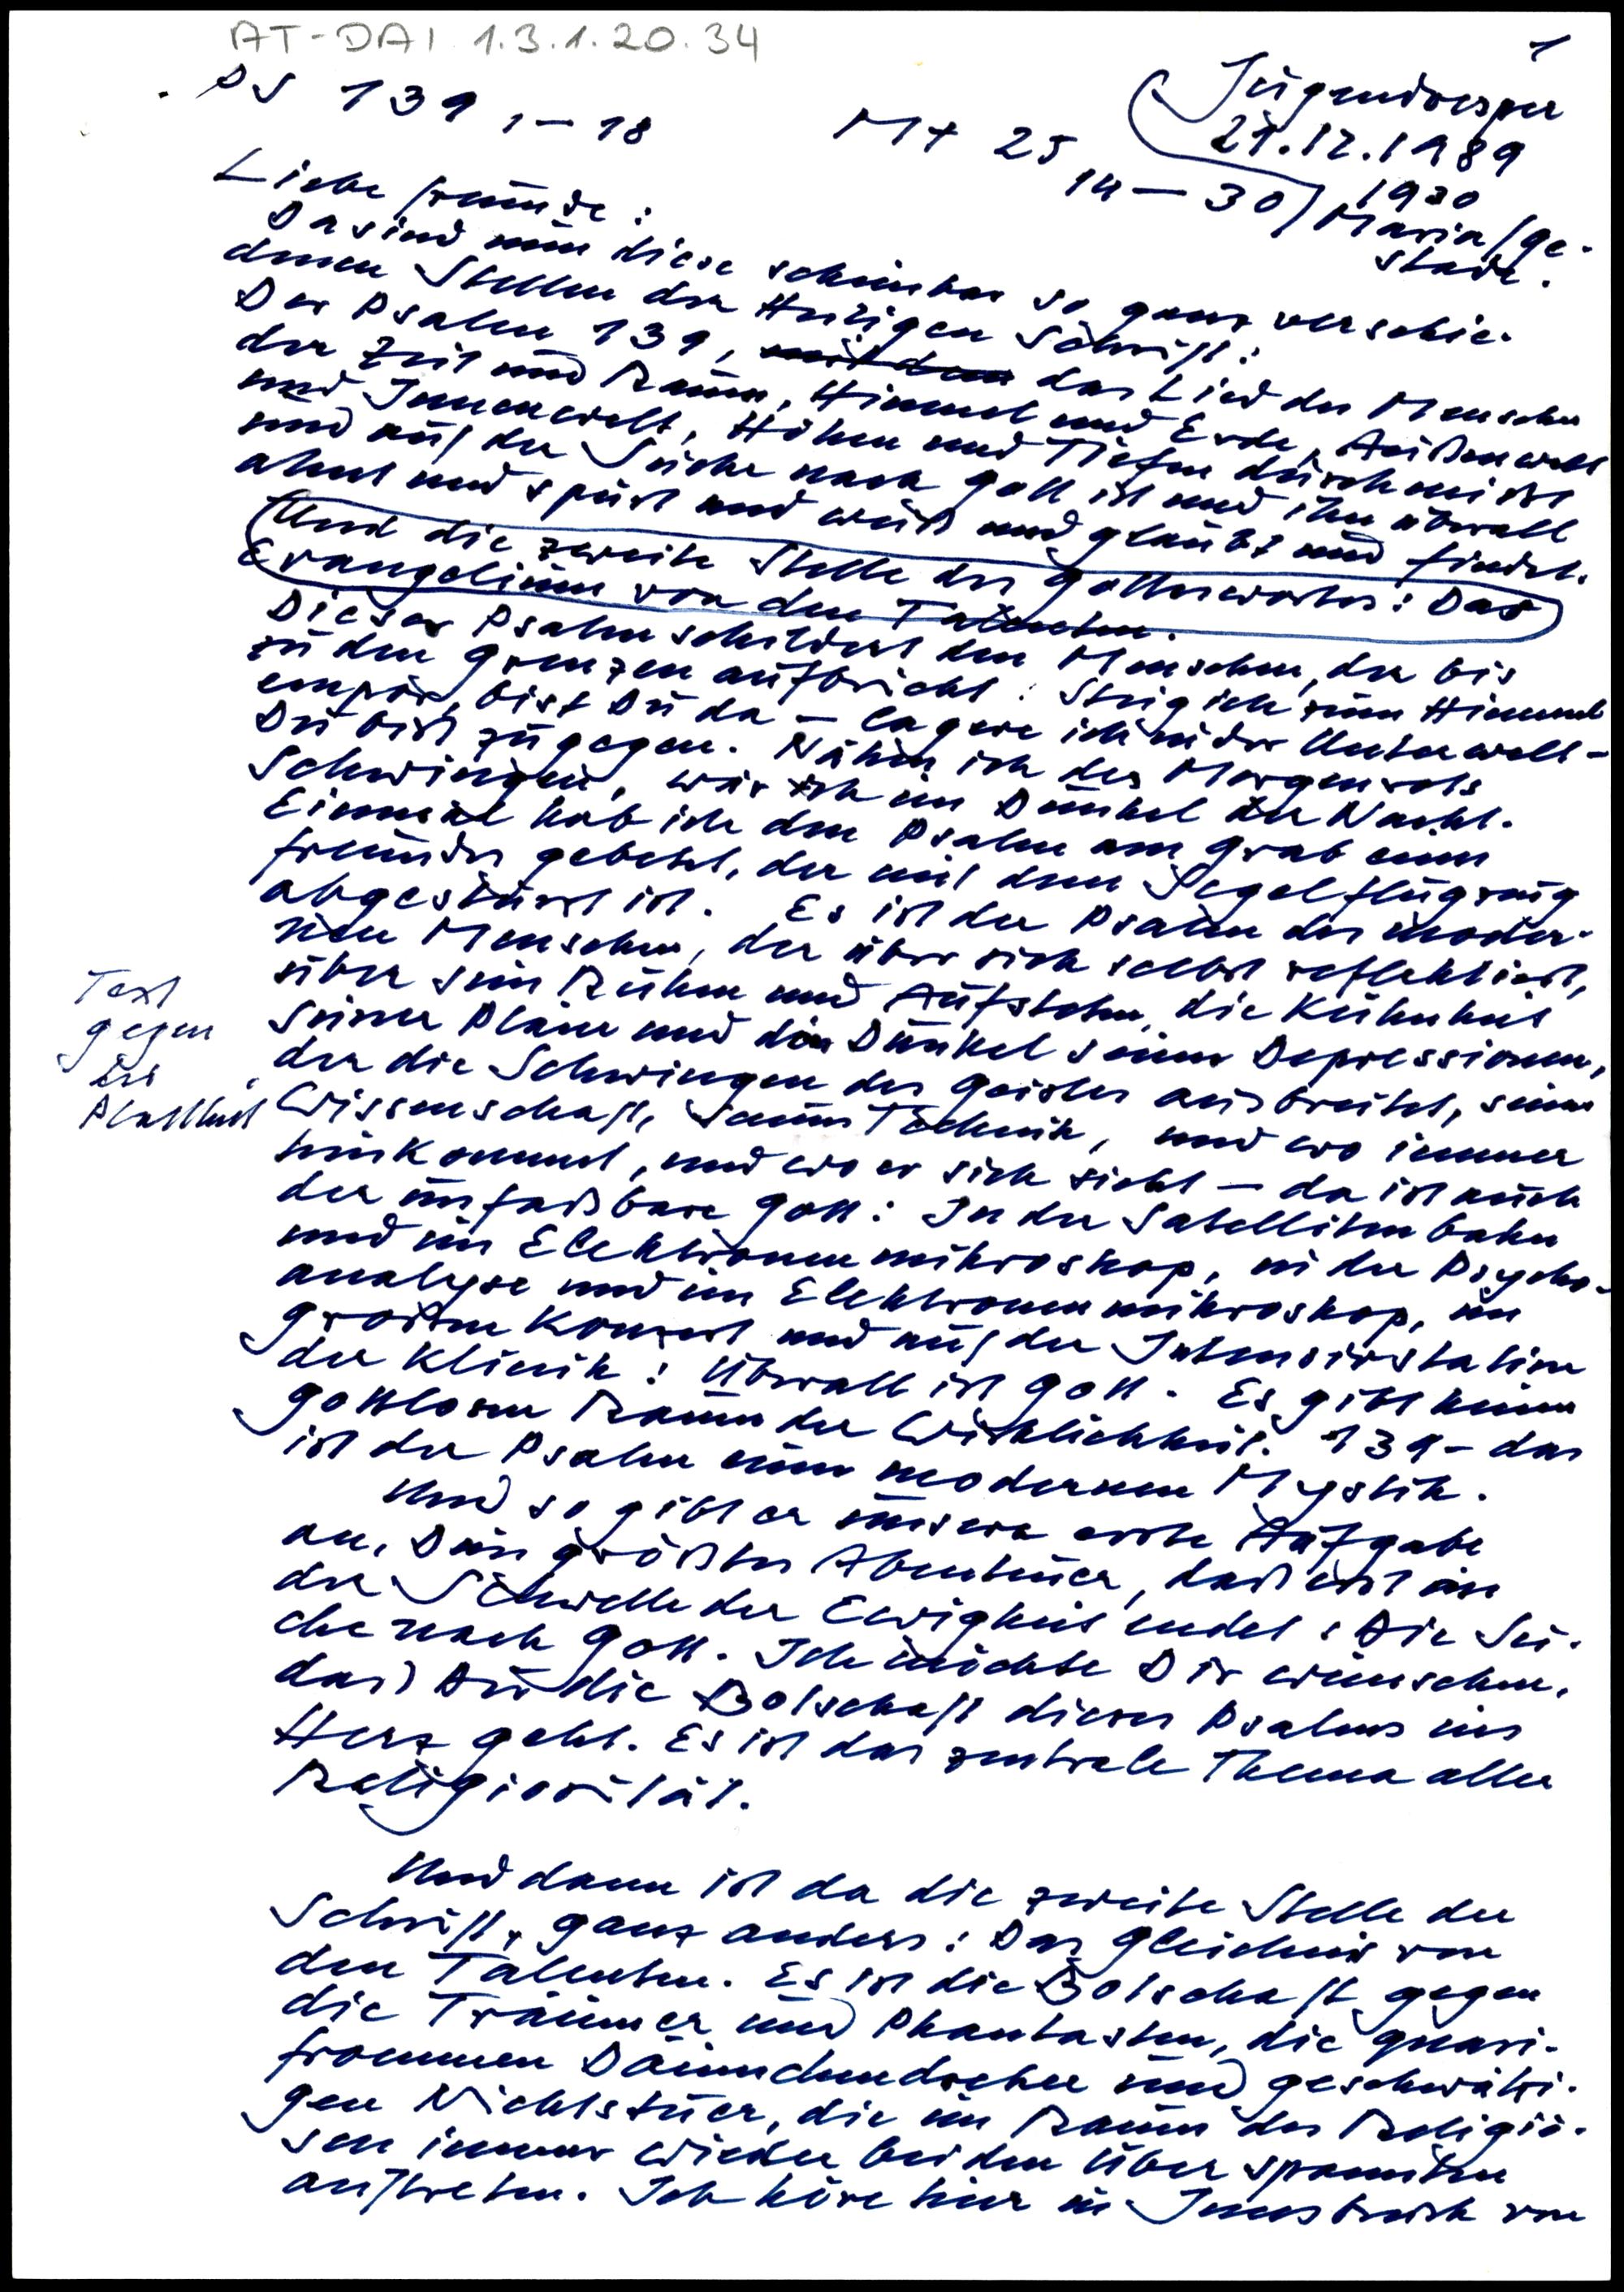 AT-DAI 1.3.1.20.34
1
Ps 139, 1-18
Mt 25, 14-30
Jugendvesper
21.12.1989
1930
Maria/Ge-
stade.
Liebe Freunde:
Da sind nun diese scheinbar so ganz verschie-
denen Stellen der Heiligen Schrift:
Der Psalm 139, mit dem das Lied des Menschen
der Zeit und Raum, Himmel und Erde, Außenwelt
und Innenwelt, Höhen und Tiefen durchmißt
und auf der Suche nach Gott ist und ihn überall
ahnt und spürt und weiß und glaubt und findet.
Und die zweite Stelle des Gotteswortes: Das
Evangelium von den Talenten.
Dieser Psalm schildert den Menschen, der bis
zu den Grenzen aufbricht: Steig ich zum Himmel
empor, bist Du da - lagere ich in der Unterwelt -
Du bist zugegen. Nähm ich des Morgenrots
Schwingen, wär ich im Dunkel der Nacht.
Einmal hab ich den Psalm am Grab eines
Freundes gebetet, der mit dem Segelflugzeug
abgestürzt ist. Es ist der Psalm des moder-
nen Menschen, der über sich selbst reflektiert,
über sein Ruhen und Aufstehn, die Kühnheit
seiner Pläne und das Dunkel seiner Depressionen,
der die Schwingen des Geistes ausbreitet, seine
Wissenschaft, seine Technik, und wo immer
hinkommt, und wo er sich sieht - da ist auch
der unfaßbare Gott: In der Satellitenbahn
und im Elektronenmikroskop, in der Psycho-
analyse und im Elektronenmikroskop, im
großen Konzert und auf der Intensivstation
der Klinik: Überall ist Gott. Es gibt keinen
gottlosen Raum der Wirklichkeit. 139 - das
ist der Psalm einer modernen Mystik.
Und so gibt er unsere erste Aufgabe
an, Dein größtes Abenteuer, daß erst an
der Schwelle der Ewigkeit endet: Die Su-
che nach Gott. Ich möchte Dir wünschen,
dass Dir die Botschaft dieses Psalms ins
Herz geht. Es ist das zentrale Thema aller
Religiosität.
Und dann ist da die zweite Stelle der
Schrift, ganz anders: Das Gleichnis von
den Talenten. Es ist die Botschaft gegen
die Träumer und Phantasten, die quasi-
frommen Däumchendreher und geschwätzi-
gen Nichtstuer, die im Raum des Religiö-
sen immer wieder bei den Überspannten
auftreten. Ich höre hier in Innsbruck von
Text
gegen
die
Plattheit